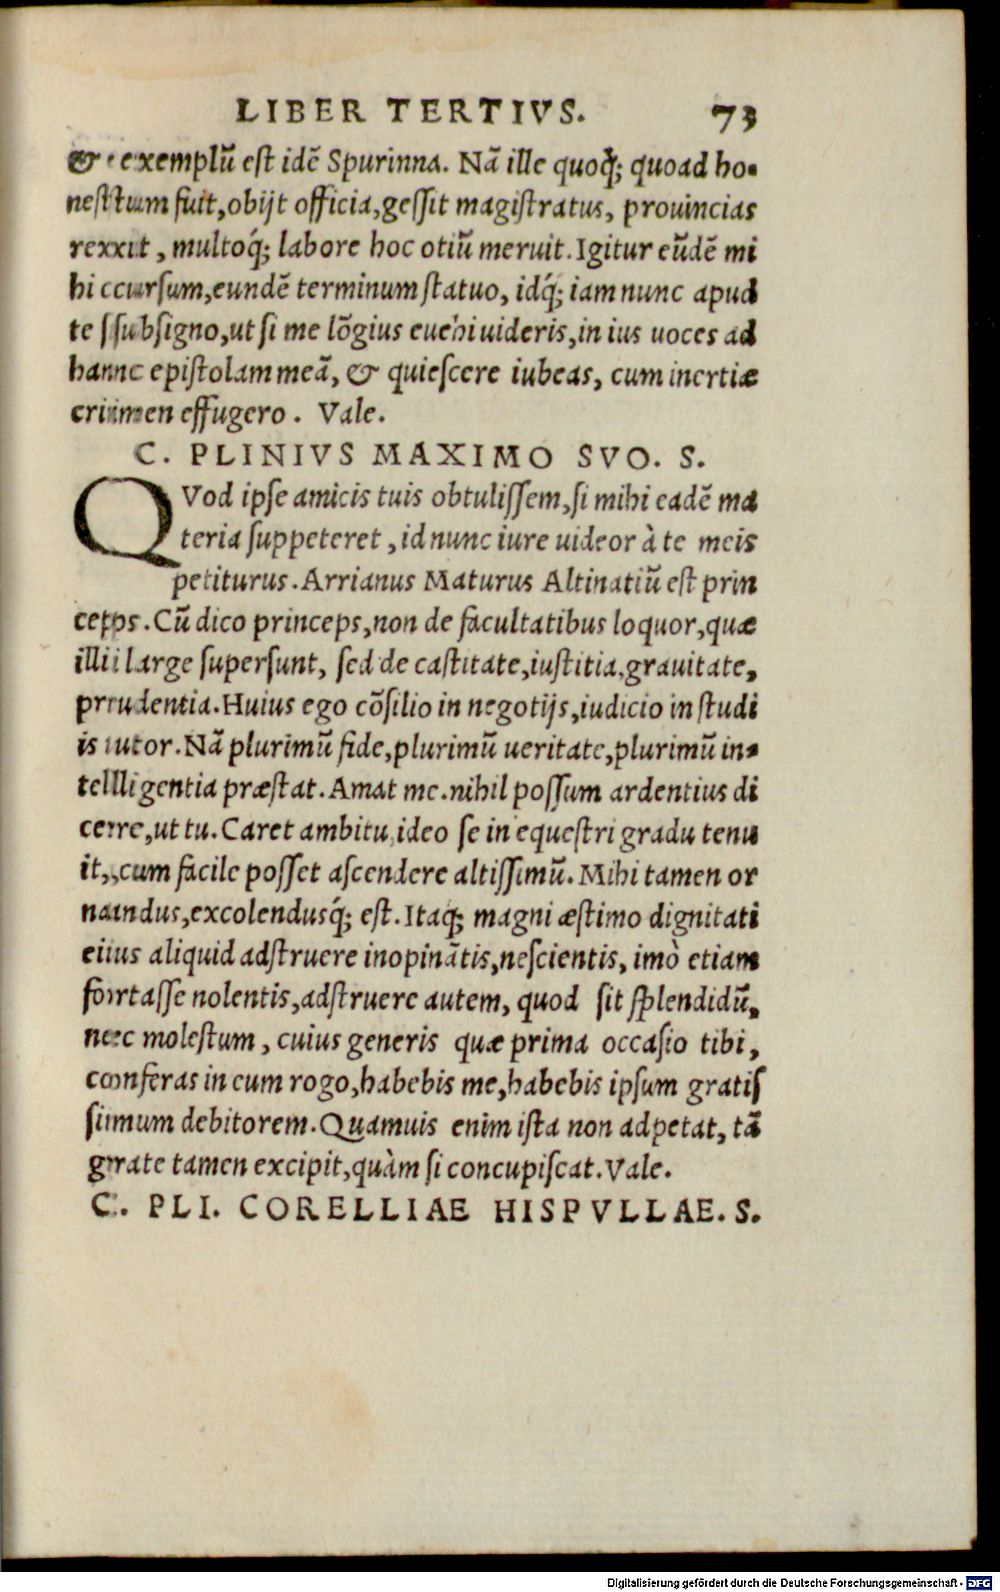 LIBER TERTIVS. 73
& exemplũ est idẽ Spurinna. Nã ille quoq́; quoad ho-
nestum fuit, obijt officia, gessit magistratus, prouincias
rexit, multoq́; labore hoc otiũ meruit. Igitur eũdẽ mi
hi cursum, eundẽ terminum statuo, idq́; iam nunc apud
te subsigno, ut si me lõgius euehi uideris, in ius uoces ad
hanc epistolam meã, & quiescere iubeas, cum inertiæ
crimen effugero. Vale.
C. PLINIVS MAXIMO SVO. S.
QVod ipse amicis tuis obtulissem, si mihi eadẽ ma
teria suppeteret, id nunc iure uideor à te meis
petiturus. Arrianus Maturus Altinatiũ est prin
ceps. Cũ dico princeps, non de facultatibus loquor, quæ
illi large supersunt, sed de castitate, iustitia, grauitate,
prudentia. Huius ego cõsilio in negotijs, iudicio in studi
is utor. Nã plurimũ fide, plurimũ ueritate, plurimũ in-
telligentia præstat. Amat me. nihil possum ardentius di
cere, ut tu. Caret ambitu, ideo se in equestri gradu tenu
it, cum facile posset ascendere altissimũ. Mihi tamen or
nandus, excolendusq́; est. Itaq; magni æstimo dignitati
eius aliquid adstruere inopinãtis, nescientis, imò etiam
fortasse nolentis, adstruere autem, quod sit splendidũ,
nec molestum, cuius generis quæ prima occasio tibi,
conferas in eum rogo, habebis me, habebis ipsum gratis
simum debitorem. Quamuis enim ista non adpetat, tã
grate tamen excipit, quàm si concupiscat. Vale.
C. PLI. CORELLIAE HISPVLLAE. S.
Digitalisierung gefördert durch die Deutsche Forschungsgemeinschaft - DFG